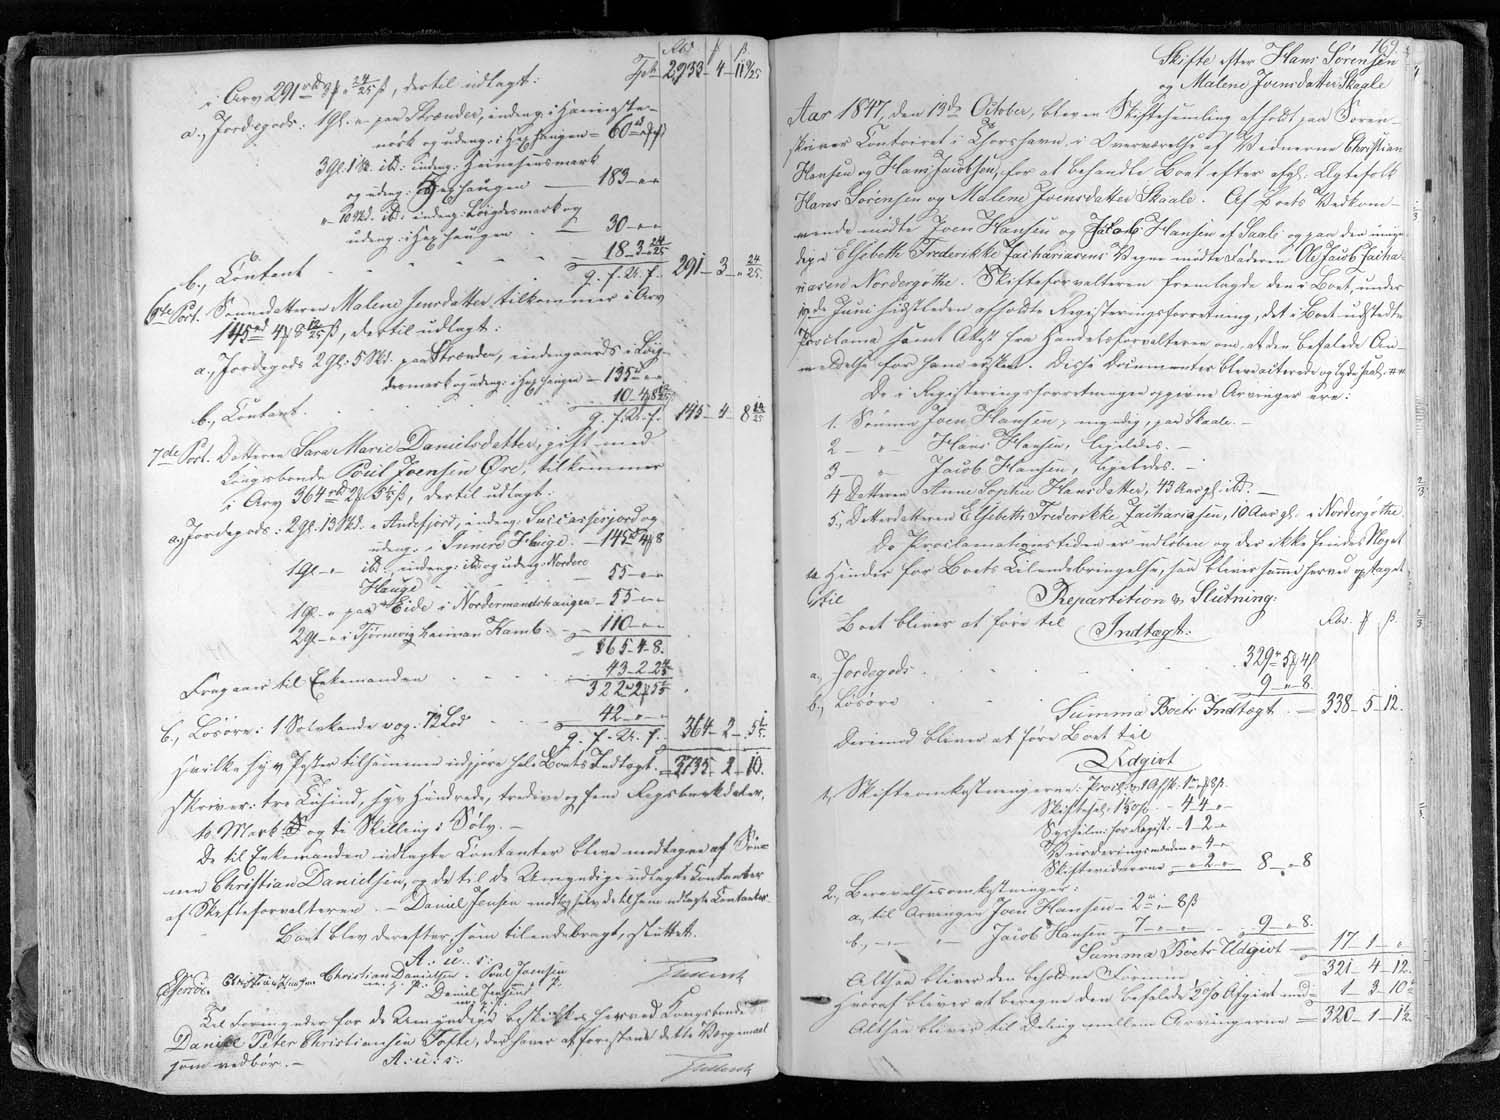 Rbd. ₰ β
Tpt. 2933 – 4 – 11 9/25
i Arv 291 rbd 3 ₰ „ 24/25 β, dertil udlagt:
a., Jordegods: 1 Gl. „ paa Strænder, indeng: i Heimingsto-
nork og udeng: i Høghaugen = 60 „ „
3 Gl. 1 Sk. ibd: indeng: Heimehuusmark
og udeng: i Høghaugen — 183 – „ – „
„ 10 Skd. ibd: indeng: Løigdesmark og
udeng: i Høghaugen — 30 – „ – „
b., Contant - - - - 18 – 3 – 24/25
g. f. Us. f. 291 – 3 – „ 24/25
6te Port. Sønnedatteren Malene Jensdatter, tilkommer i Arv
145 rbd 4 ₰ 8 14/25 β, dertil udlagt:
a., Jordegods 2 Gl. 5 Skd. paa Strænder, indengaards i Løig-
desmark og udeng: i Høghaugen — 135 „ „
b., Contant. - - - - 10 – 4 – 8 14/25
g. f. Us. f. 145 – 4 – 8 14/25
7de Port. Datteren Sara Marie Danielsdatter, gift med
Kongsbonde Poul Joensen Øre, tilkommer
i Arv 364 rbd 2 ₰ 5 1/5 β, dertil udlagt:
a., Jordegods: 2 Gl. 13 Skd. i Andefjord, indeng:
udeng: i Innere Hauge — 145 4 ₰ 8
1 Gl. – „ ibd: indeng: ibd: og udeng: Nordere
Hauge — 55 – „ – „
1 Gl. „ paa Eide i Nordermandshaugen – 55 – „ – „
2 Gl. – „ i Tjørnevig heimran Kamb: — 110 – „ – „
365 – 4 – 8.
Fragaaer til Enkemanden - - - 43 – 2
322 2 ₰ 5 1/5
b., Løsøre: 1 Sølvkande vog. 72 Lod - - 42 – „ – „
g. f. Us. f. 364 – 2 – 5 1/5
hvilke syv Poster tilsammen udgjøre hele Boets Indtægt. = 3735 – 2 – 10.
skriver: tre Tusind, syv Hundrede, tredive og fem Rigsbankdaler,
to Mark og ti Skilling i Sølv. –
De til Enkemanden udlagte Contanter bleve modtagne af Søn-
nen Christian Danielsen, og de til de Umyndige udlagte Contanter
af Skifteforvalteren. – Daniel Jensen modtog selv de til ham udlagte Contanter.
Boet blev derefter, som tilendebragt, sluttet.
A: u: s:
Effersøe. Christian Danielsen Poul Joensen
m. f. P. P.
Daniel Jensen
m. f. P.
Til Formynder for de Umyndige beskikkes herved Kongsbonde
Daniel Peter Christiansen Tofte, der haver at forestaae dette Værgemaal
som vedbør. – A: u: s:
169.
Skifte efter Hans Sørensen
og Malene Joensdatter Skaale
Aar 1847, den 13de October, blev en Skiftesamling afholdt paa Soren-
skriver Contoiret i Thorshavn, i Overværelse af Vidnerne Christian
Hansen og Hans Jacobsen, for at behandle Boet efter afg: Ægtefolk
Hans Sørensen og Malene Joensdatter Skaale. Af Boets Vedkom-
mende mødte Joen Hansen og Jacob Hansen af Saale og paa den umyn-
dige Elsebeth Frederikke Zachariasens Vegne mødte Faderen Ole Jacob Zacha-
riasen Nordergøthe. Skifteforvalteren fremlagde den i Boet, under
de Juni sidstleden afholdte Registeringsforretning, det i Boet udstedte
Proclama samt Attest fra Handelsforvalteren om, at den befalede An-
meldelse for ham er skeet. Disse Documenter bleve aciterede og lyde saal. ##
De i Registeringsforretningen opgivne Arvinger ere:
1. Sønnen Joen Hansen, myndig, paa Skaale. –
2 – „ – Hans Hansen, ligeledes. –
3 – „ Jacob Hansen, ligeledes. –
4 Datteren Anne Sophie Hansdatter, 43 Aar gl. ibd. –
5., Datterdatteren Elsebeth Frederikke Zachariasen, 10 Aar gl. i Nordergøthe.
Da Proclamationstiden er udløben og der ikke findes Noget
til Hinder for Boets Tilendebringelse, saa bliver samme herved optaget
til
Repartition & Slutning:
Boet bliver at føre til Rbd. ₰ β.
Indtægt:
a., Jordegods. - - - - 329 5 ₰ 4 β
b., Løsøre - - - - 9 – „ – 8
Summa Boets Indtægt. — 338 – 5 – 12.
Derimod bliver at føre Boet til
Udgivt
1., Skifteomkostningerne: Procl. 8 β.
Skiftesal: 1½ % - 4 4 „
Sysselm: for Regist: – 1 2 „
Vurderingsmændene „ 4 „
Skiftevidnerne „ 2 „ 8 – „ 8
2., Begravelsesomkostninger:
a., til Arvingen Joen Hansen – 2 „ 8 β
b., – „ – „ Jacob Hansen – 7 – „ – „ - 9 – „ 8.
Summa Boets Udgivt — 17 1 – „
Altsaa bliver den beholdne Summa 321 – 4 – 12.
Hvoraf bliver at beregne den befalede ½ % Afgivt med = 1 – 3 – 10½
Altsaa bliver til Deling mellem Arvingerne = 320 – 1 – 1½